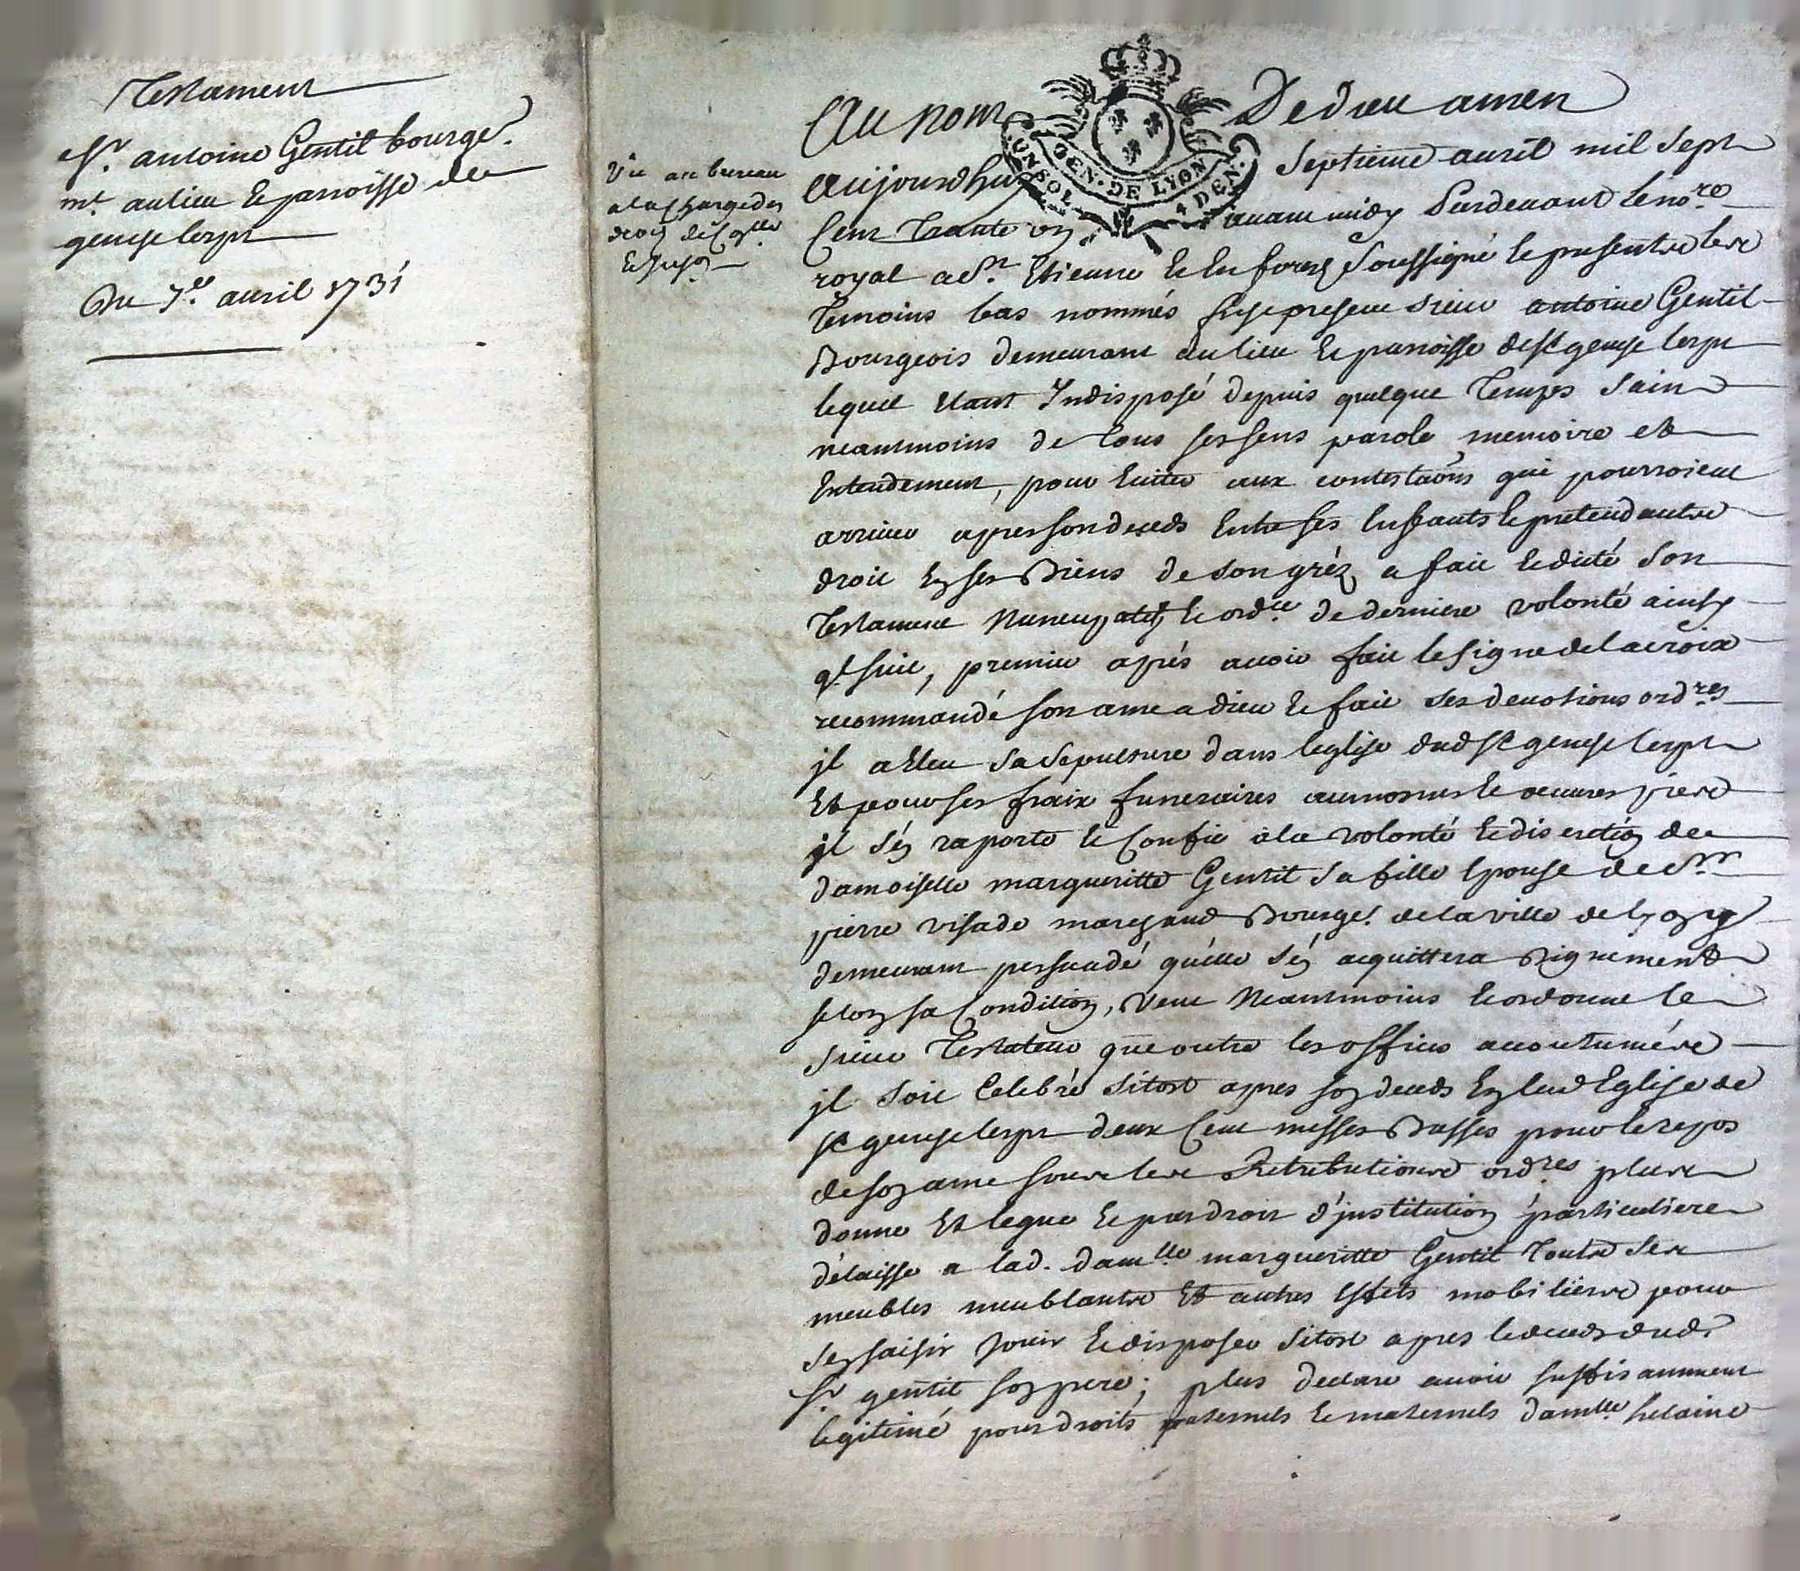 Testament
Sr. antoine Gentil bourge.
mt. au lieu & parroisse de
genest lerpt
Du 7e. avril 1731
Vu au bureau
a la charge des
Au nom De dieu amen
GEN. DE LYON
UN SOL 4 DEN.
aujourdhuy septieme avril mil sept
Cent Trante un avant midy Pardevant le nore
royal a St. Etienne & en forez soussigné & presents les
Temoins bas nommés fust present sieur antoine Gentil
Bourgeois demeurant au lieu & parroisse de st genest lerpt
lequel etant Indisposé depuis quelque Temps sain
neantmoins de tous ses sens parole memoire et
Entendement, pour Eviter aux contestaõns qui pourroient
arriver apres son deceds Entre ses Enfants & pretendants
droit En ses Biens de son gréz a fait & dicté son
Testament Nuncupatif & ordce. de derniere volonté ainsy
qt. suit, premier aprés avoir fait le signe de la croix
recommandé son ame a dieu & fait ses devotions ordres
jl a Eleu sa sepulture dans leglise dud st genest lerpt
Et pour ses fraix funeraires aumosnes & oeuvres pies
jl s'én raporte & Confie a la volonté & discretion de
damoiselle margueritte Gentil sa fille Epouse de Sr.
pierre visade marchand Bourgs. de la ville de Lyon
demeurant persuadé qu'elle s'én acquittera dignement
selon sa Condition, veut Neantmoins & ordonne le
sieur Testateur que outre les offices accoutumés
jl soit Celebré sitost apres son deceds En lad Eglise de
st genest lerpt deux Cent messes Basses pour le repos
de son ame sous les Retributions ordres plus
donne Et legue & par droit d'jnstitution particuliere
délaisse a lad. damlle margueritte Gentil Toutes ses
meubles meublants Et autres Effets mobiliers pour
s'en saisir jouir & disposer sitost apres le deceds dud
Sr. gentil son pere; plus declare avoir suffisamment
legitimé pour droits paternels & maternels damlle helaine